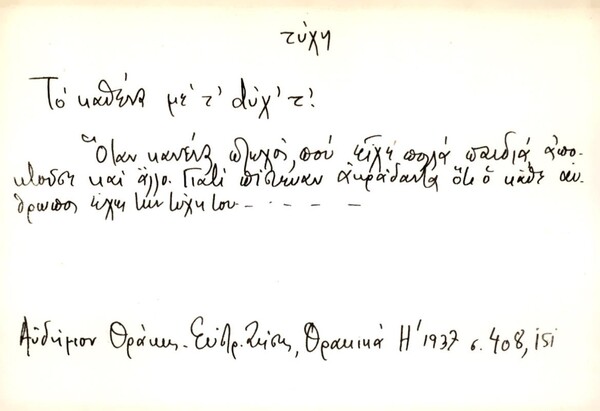 τύχη
Τό καθένα μέ τ' τύχ' τ'.
Ὅταν κανένας φτωχός, πού εἶχε πολλά παιδιά ἀπο-
κτοῦσε καί ἄλλο. Γιατί πίστευαν ἀκράδαντα ὅτι ὁ κάθε ἄν-
θρωπος ἔχει τήν τύχη του - - - - -
Αὐδήμιον Θράκης. Εὐστρ. Ζήσης, Θρακικά Η' 1937 σ. 408, 151